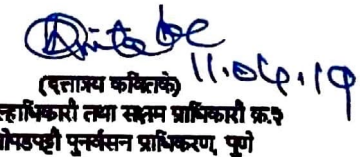 11.04.19
(दत्तात्रय कवितके)
ल्हाधिकारी तथा सक्षम प्राधिकारी क्र.२
ोपडपट्टी पुनर्वसन प्राधिकरण, पुणे